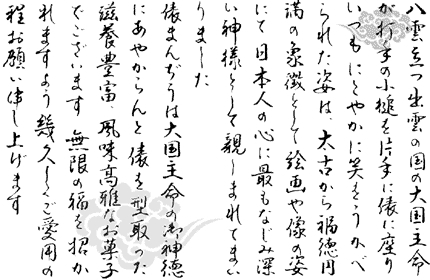 八雲立つ出雲の国の大国主命
が打手の小槌を片手に俵に座り
いつもにこやかに笑をうかべ
られた姿は、太古から福徳円
満の象徴として絵画や像の姿
にて日本人の心に最もなじみ深
い神様として親しまれてまい
りました
俵まんぢうは大国主命の御神徳
にあやからんと俵を型取った
滋養豊富、風味高雅なお菓子
でございます 無限の福を招か
れますよう幾久しくご愛用の
程お願い申し上げます